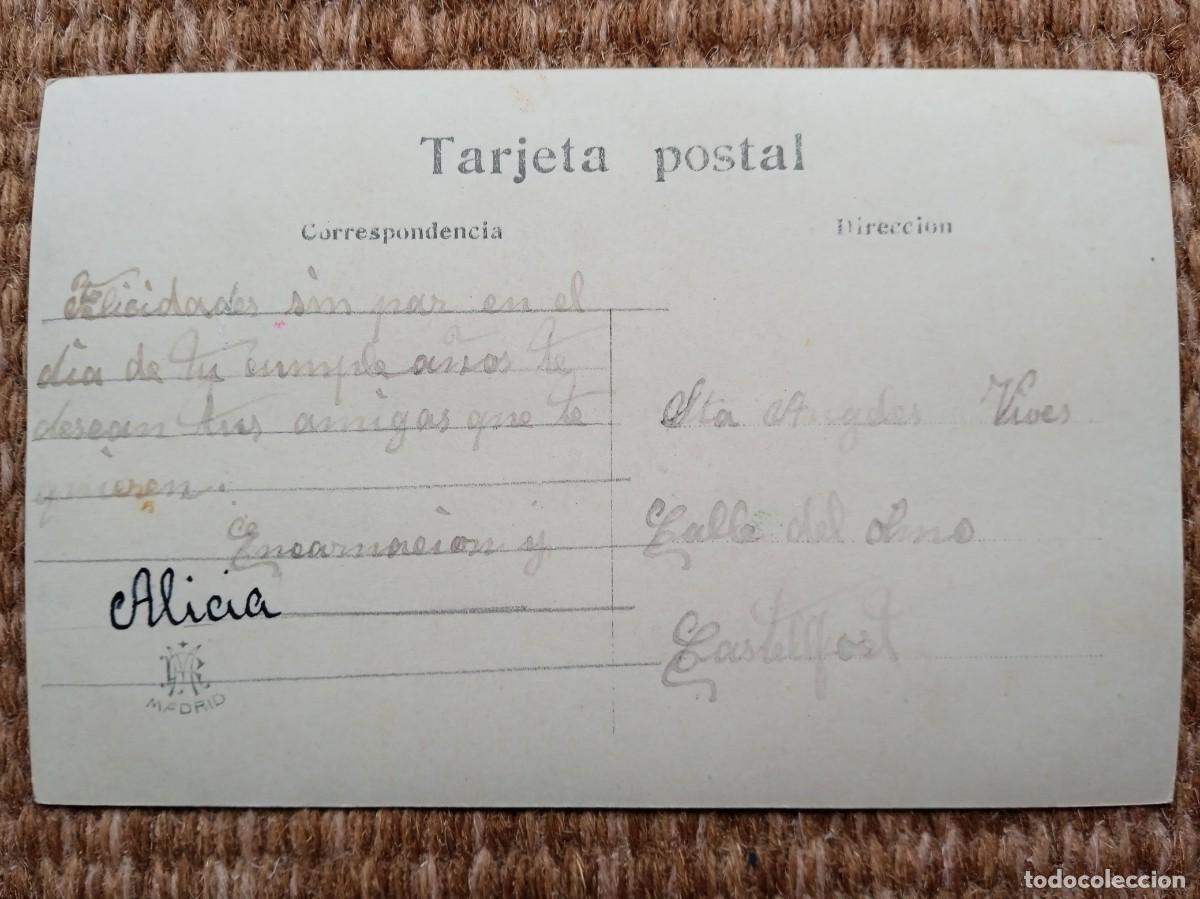 Tarjeta postal
Correspondencia
Direccion
Felicidades sin par en el
dia de tu cumple años te
desean tus amigas que te
quieren.
Encarnacion y
Alicia
MADRID
Sta Angeles Vives
Calle del
Castellfort
todocoleccion